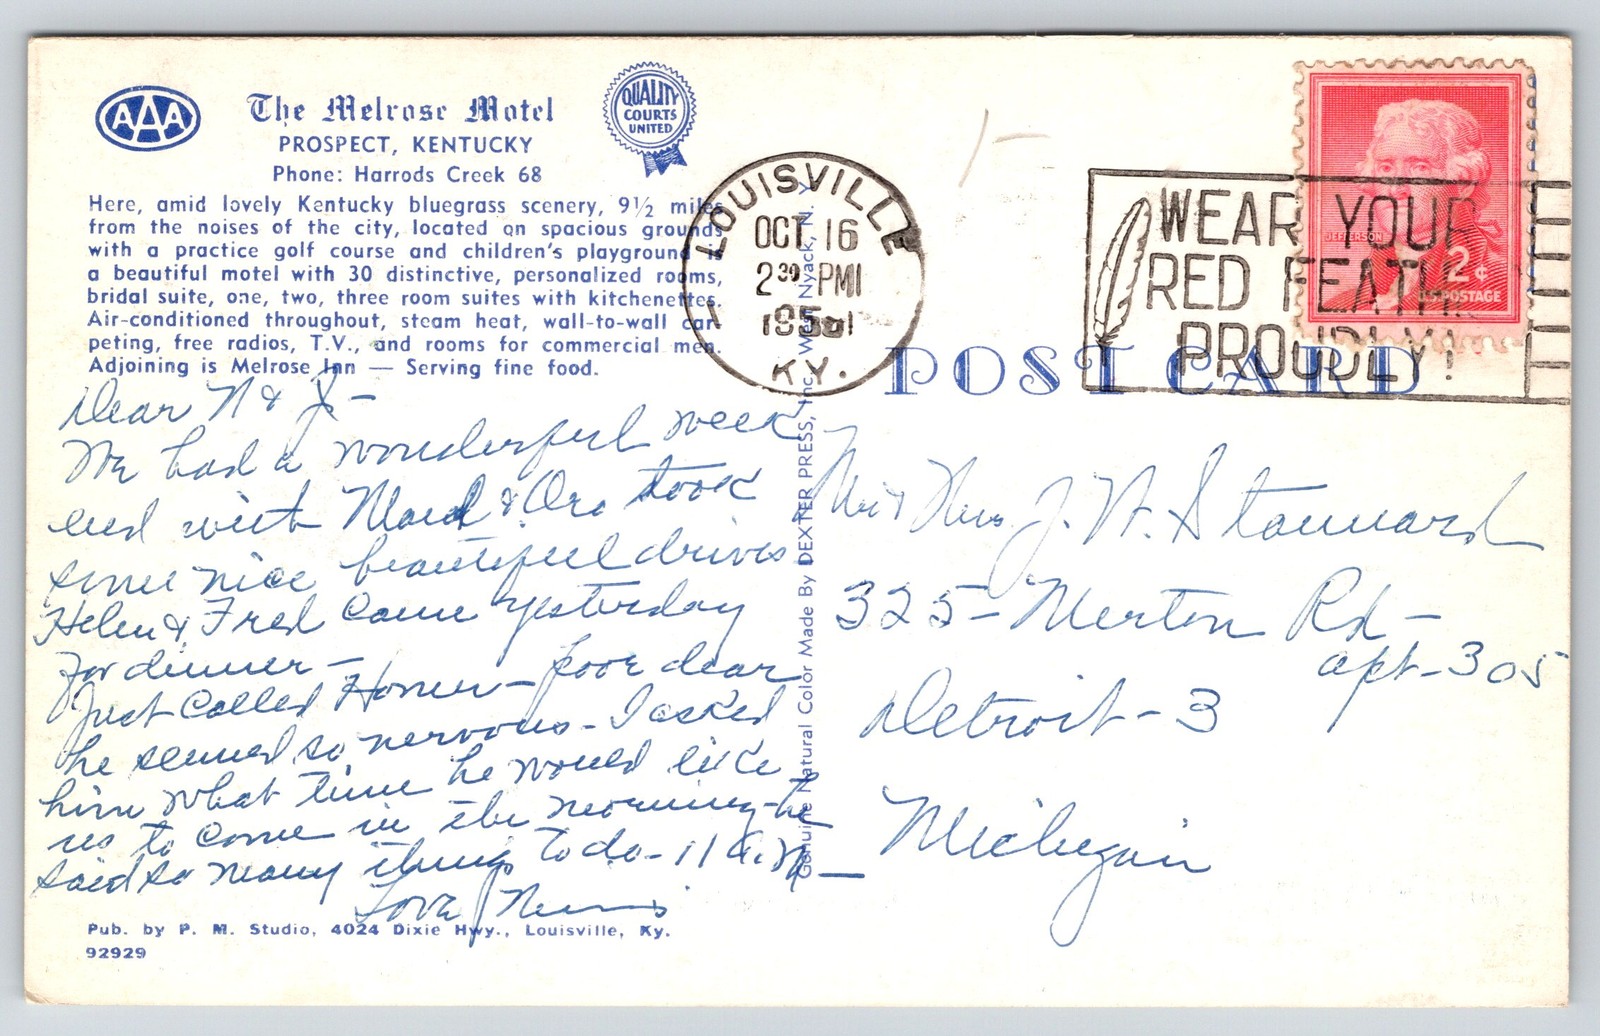 AAA
The Melrose Motel
PROSPECT, KENTUCKY
Phone: Harrods Creek 68
QUALITY
COURTS
UNITED
Here, amid lovely Kentucky bluegrass scenery, 9½ miles
from the noises of the city, located on spacious grounds
with a practice golf course and children's playground is
a beautiful motel with 30 distinctive, personalized rooms,
bridal suite, one, two, three room suites with kitchenettes.
Air-conditioned throughout, steam heat, wall-to-wall car-
peting, free radios, T.V., and rooms for commercial men.
Adjoining is Melrose Inn — Serving fine food.
Dear N & J-
We had a wonderful week
end with Maud & Ora took
some nice beautiful drives
Helen & Fred came yesterday
for dinner-
Just called Homer- poor dear
he seemed so nervous- I asked
him what time he would like
us to come in the morning- he
said so many things to do- 11 A.M.-
Love
Pub. by P. M. Studio, 4024 Dixie Hwy., Louisville, Ky.
92929
Genuine Natural Color Made By DEXTER PRESS, Inc. West Nyack, N. Y.
LOUISVILLE
OCT 16
2 30 PM
195
1
KY.
WEAR YOUR
RED FEATHER
PROUDLY!
JEFFERSON
2¢
U.S. POSTAGE
POST CARD
Mr & Mrs J. N. Stannard
325- Merton Rd-
apt-305
Detroit-3
Michigan